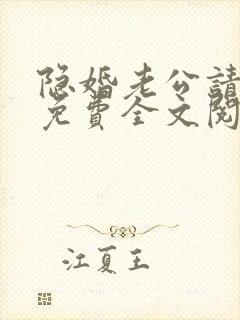 隐婚老公請
免費全文閱
江夏王